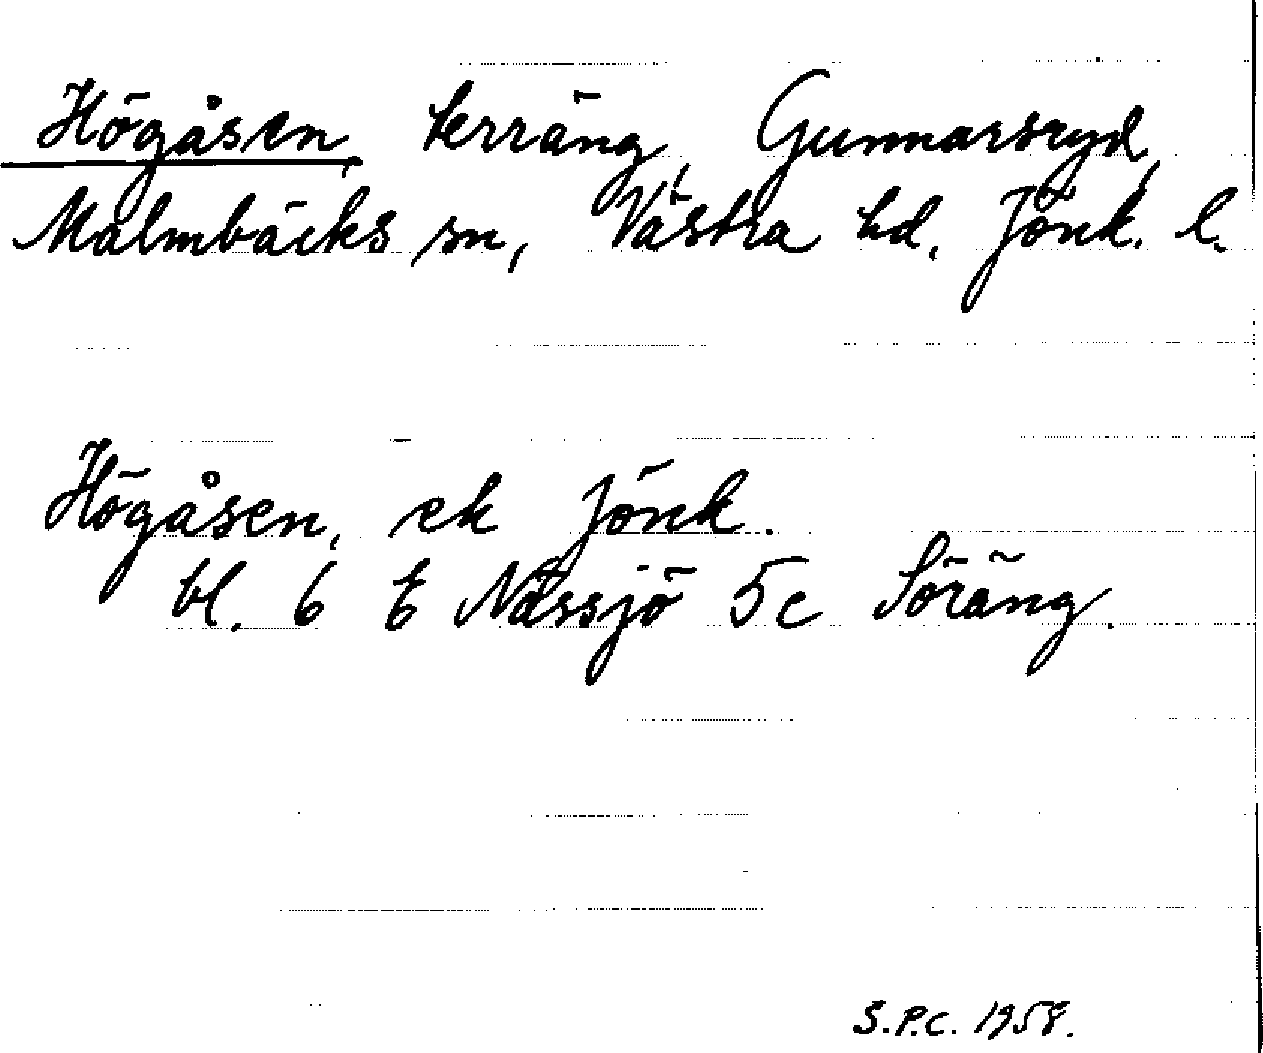 Högåsen, terräng, Gunnarsryd,
Malmbäcks sn, Västra hd. Jönk. l.
Högåsen, ek Jönk.
bl. 6 E Nässjö 5c Söräng.
S.P.C. 1958.